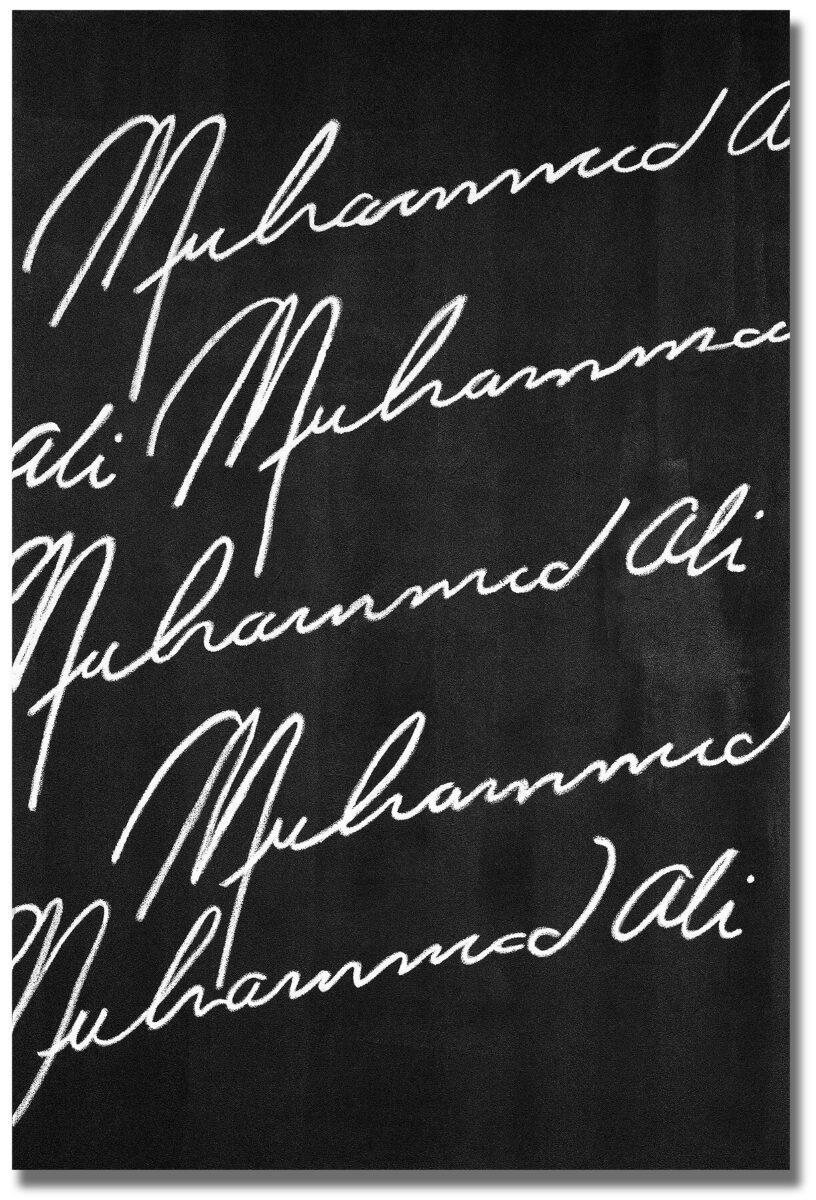 Muhammad A
Muhamma
Ali
Muhammad Ali
Muhammad
Muhammad Ali